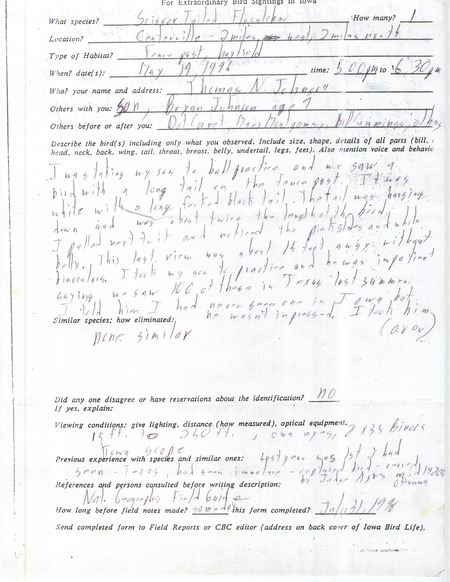 For Extraordinary Bird Sightings in Iowa
What species? Scissor Tailed Flycatcher How many? 1
Location? Centerville - 2 miles west, 2 miles north
Type of Habitat? Fence post, hayfield
When? date(s): May 19, 1996 time: 5:00 pm to 6:30 pm
Who? your name and address: Thomas N. Johnson
Others with you: son, Bryan Johnson age 7
Others before or after you:
Describe the bird(s) including only what you observed. Include size, shape, details of all parts (bill,
head, neck, back, wing, tail, throat, breast, belly, undertail, legs, feet). Also mention voice and behavio
I was taking my son to ball practice and we saw a
bird with a long tail on the fence post. It was
white with a long forked black tail. The tail was hanging
down and was about twice the length of the bird.
I pulled next to it and noticed the pink sides and white
belly. This last view was about 15 feet away without
binoculars. I took my son to practice and he was impatient
saying we saw 100 of those in Texas last summer.
I told him I had never seen one in Iowa but
he wasn't impressed. I took him
Similar species; how eliminated: (over)
none similar
Did any one disagree or have reservations about the identification? no
If yes, explain:
Viewing conditions: give lighting, distance (how measured), optical equipment.
15 ft. to 250 ft., own eyes, 7x35 Binocs
scope
Previous experience with species and similar ones: Last year was 1st I had
seen - Texas, had seen
References and persons consulted before writing description:
Nat. Geographic Field Guide
How long before field notes made? same day this form completed? July 31, 1996
Send completed form to Field Reports or CBC editor (address on back cover of Iowa Bird Life).